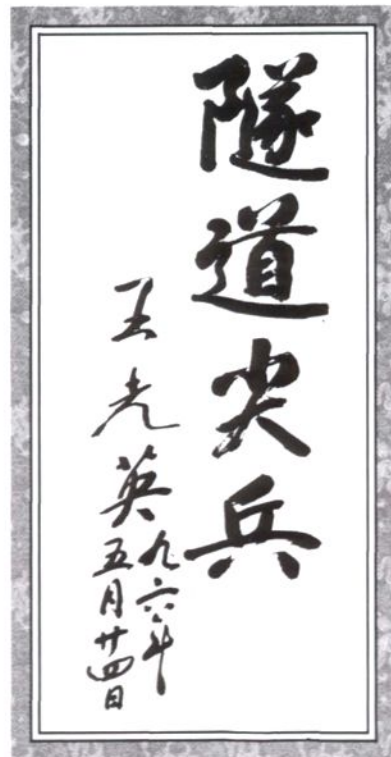 隧道尖兵
王光英
九六年
五月廿四日